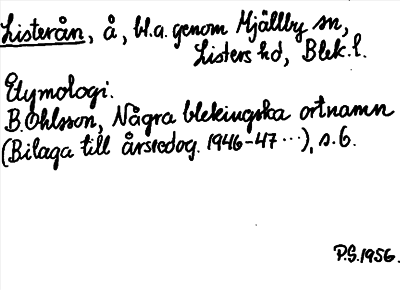 Listerån, å, bl.a. genom Mjällby sn,
Listers hd, Blek.l.
Etymologi.
B. Ohlsson, Några blekingska ortnamn
(Bilaga till årsredog. 1946-47 ...), s. 6.
P.S. 1956.